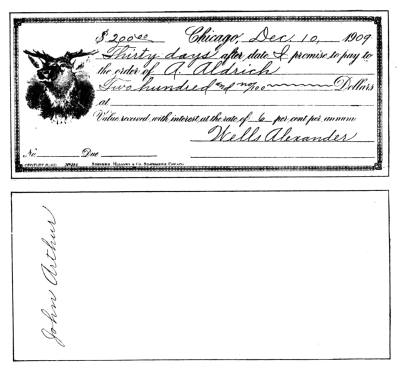 $200.00 Chicago, Dec. 10, 1909
Thirty days after date I promise to pay to
the order of A. Aldrich
Two hundred and no/100 Dollars
at
Value received with interest at the rate of 6 per cent per annum
Wells Alexander
No. Due
John Arthur